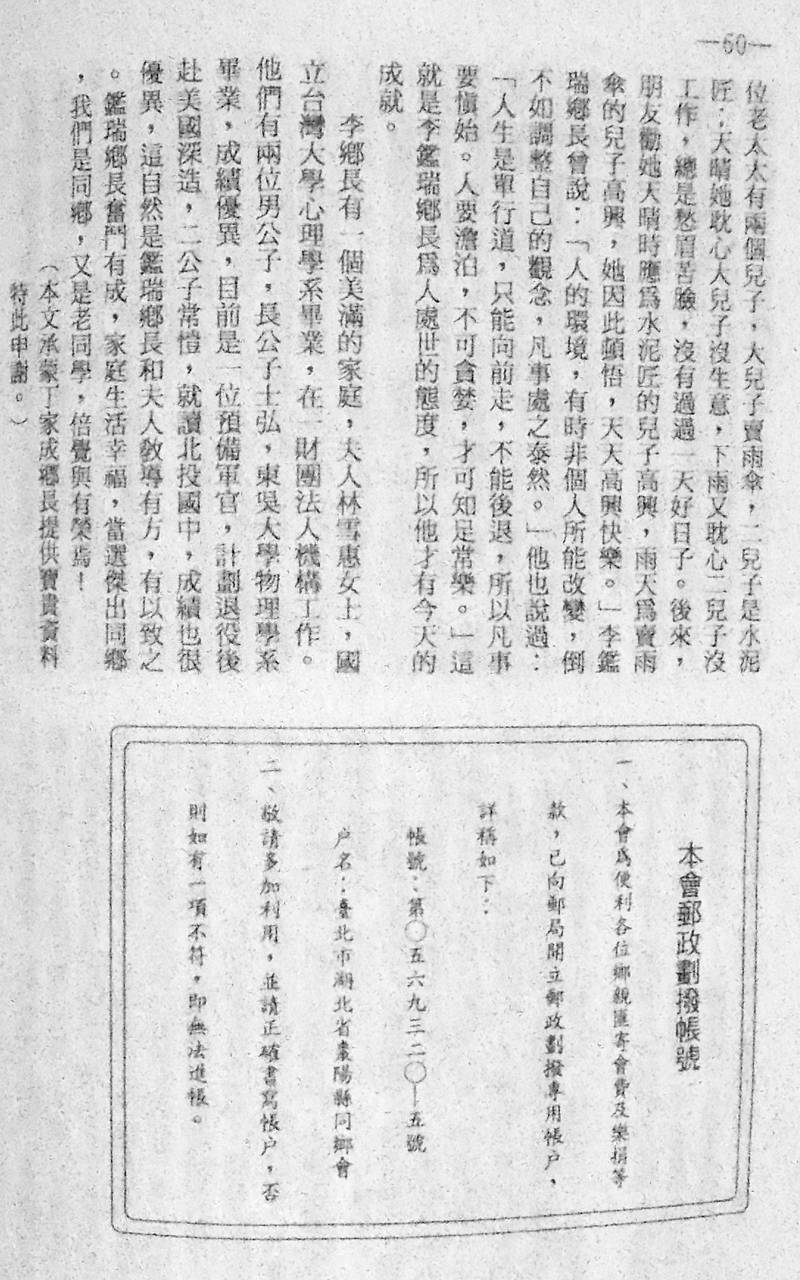 —60—
位老太太有兩個兒子，大兒子賣雨傘，二兒子是水泥
匠：天晴她耽心大兒子沒生意，下雨又耽心二兒子沒
工作，總是愁眉苦臉，沒有過過一天好日子。後來，
朋友勸她天晴時應爲水泥匠的兒子高興，雨天爲賣雨
傘的兒子高興，她因此頓悟，天天高興快樂。」李鑑
瑞鄉長曾說：「人的環境，有時非個人所能改變，倒
不如調整自己的觀念，凡事處之泰然。」他也說過：
「人生是單行道，只能向前走，不能後退，所以凡事
要愼始。人要澹泊，不可貪婪，才可知足常樂。」這
就是李鑑瑞鄉長爲人處世的態度，所以他才有今天的
成就。
李鄉長有一個美滿的家庭，夫人林雪惠女士，國
立台灣大學心理學系畢業，在一財團法人機構工作。
他們有兩位男公子，長公子士弘，東吳大學物理學系
畢業，成績優異，目前是一位預備軍官，計劃退役後
赴美國深造，二公子常愷，就讀北投國中，成績也很
優異，這自然是鑑瑞鄉長和夫人教導有方，有以致之
。鑑瑞鄉長奮鬥有成，家庭生活幸福，當選傑出同鄉
，我們是同鄉，又是老同學，倍覺與有榮焉！
（本文承蒙丁家成鄉長提供寶貴資料
特此申謝。）
本會郵政劃撥帳號
一、本會爲便利各位鄉親匯寄會費及樂捐等
款，已向郵局開立郵政劃撥專用帳户，
詳稱如下：
帳號：第〇五六九三二〇—五號
户名：臺北市湖北省棗陽縣同鄉會
二、敬請多加利用，並請正確書寫帳户，否
則如有一項不符，即無法進帳。